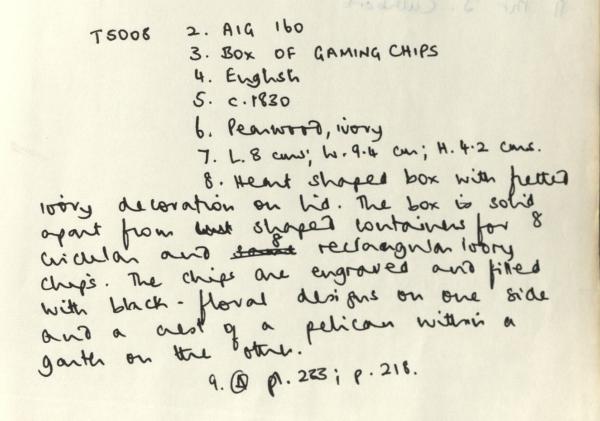 T5008 2. AIG 160
3. BOX OF GAMING CHIPS
4. English
5. c.1830
6. Pearwood, ivory
7. L. 8 cms; W. 9.4 cm; H. 4.2 cms.
8. Heart shaped box with fretted
ivory decoration on lid. The box is solid
apart from shaped containers for 8
circular and 8 rectangular ivory
chips. The chips are engraved and filled
with black - floral designs on one side
and a crest of a pelican within a
garter on the other.
9. A pl. 223; p. 218.